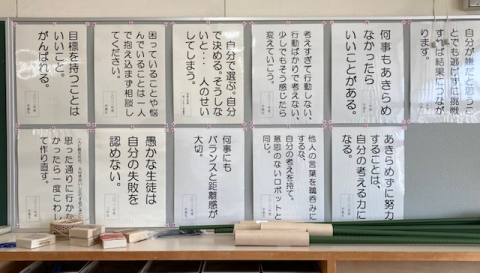 自分が嫌だと思うこ
とでも逃げずに挑戦
すれば結果につなが
ります。
何事もあきらめ
なかったら
いいことがある。
考えすぎて行動しない、
行動ばかりで考えない、
少しでもそう感じたら
変えていこう。
自分で選ぶ。自分
で決める。そうしな
いと…人のせい
してしまう。
困っていることや悩
んでいることは一人
で抱え込まず相談し
てください。
目標を持つことは
いいこと。
がんばれる。
あきらめずに努力
することは、
自分の考える力に
なる。
他人の言葉を鵜呑みに
するな、
自分の考えを持て。
意思のないロボットと
同じ。
何事にも
バランスと距離感が
大切。
愚かな生徒は
自分の失敗を
認めない。
思った通りに行かな
かったら一度こわし
て作り直す。